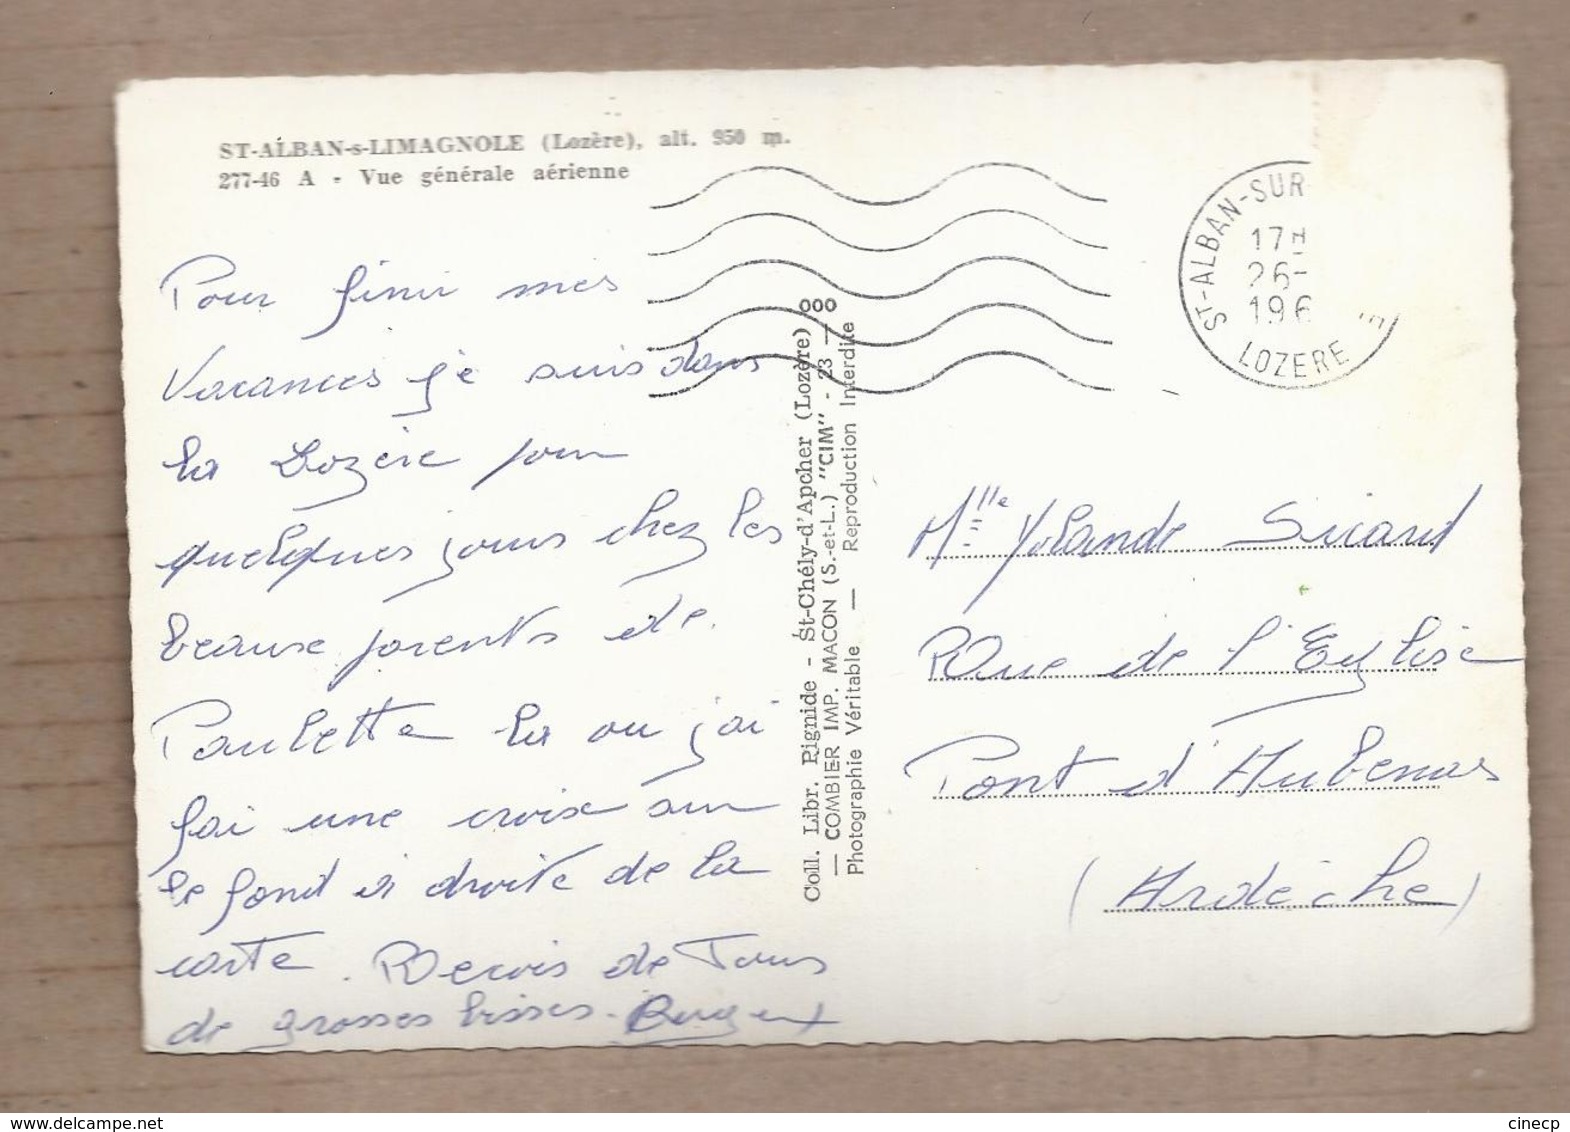 ST-ALBAN-s-LIMAGNOLE (Lozère), alt. 950 m.
277-46 A - Vue générale aérienne
Pour finir mes
Vacances je suis dans
la Lozère pour
quelques jours chez les
beaux parents de
Paulette la ou j'ai
fai une croix sur
le fond a droite de la
carte. Recois de Tous
de grosses bisses.
Coll. Libr. Rignide - St-Chély-d'Apcher (Lozère) ooo
— COMBIER IMP. MACON (S.-et-L.) "CIM" - 23 —
Photographie Véritable — Reproduction Interdite
ST-ALBAN-SUR
17H
26-
196
LOZERE
Mlle Yolande Sicard
Rue de l'Eglise
Pont d'Aubenas
(Ardèche)
www.delcampe.net
cinecp